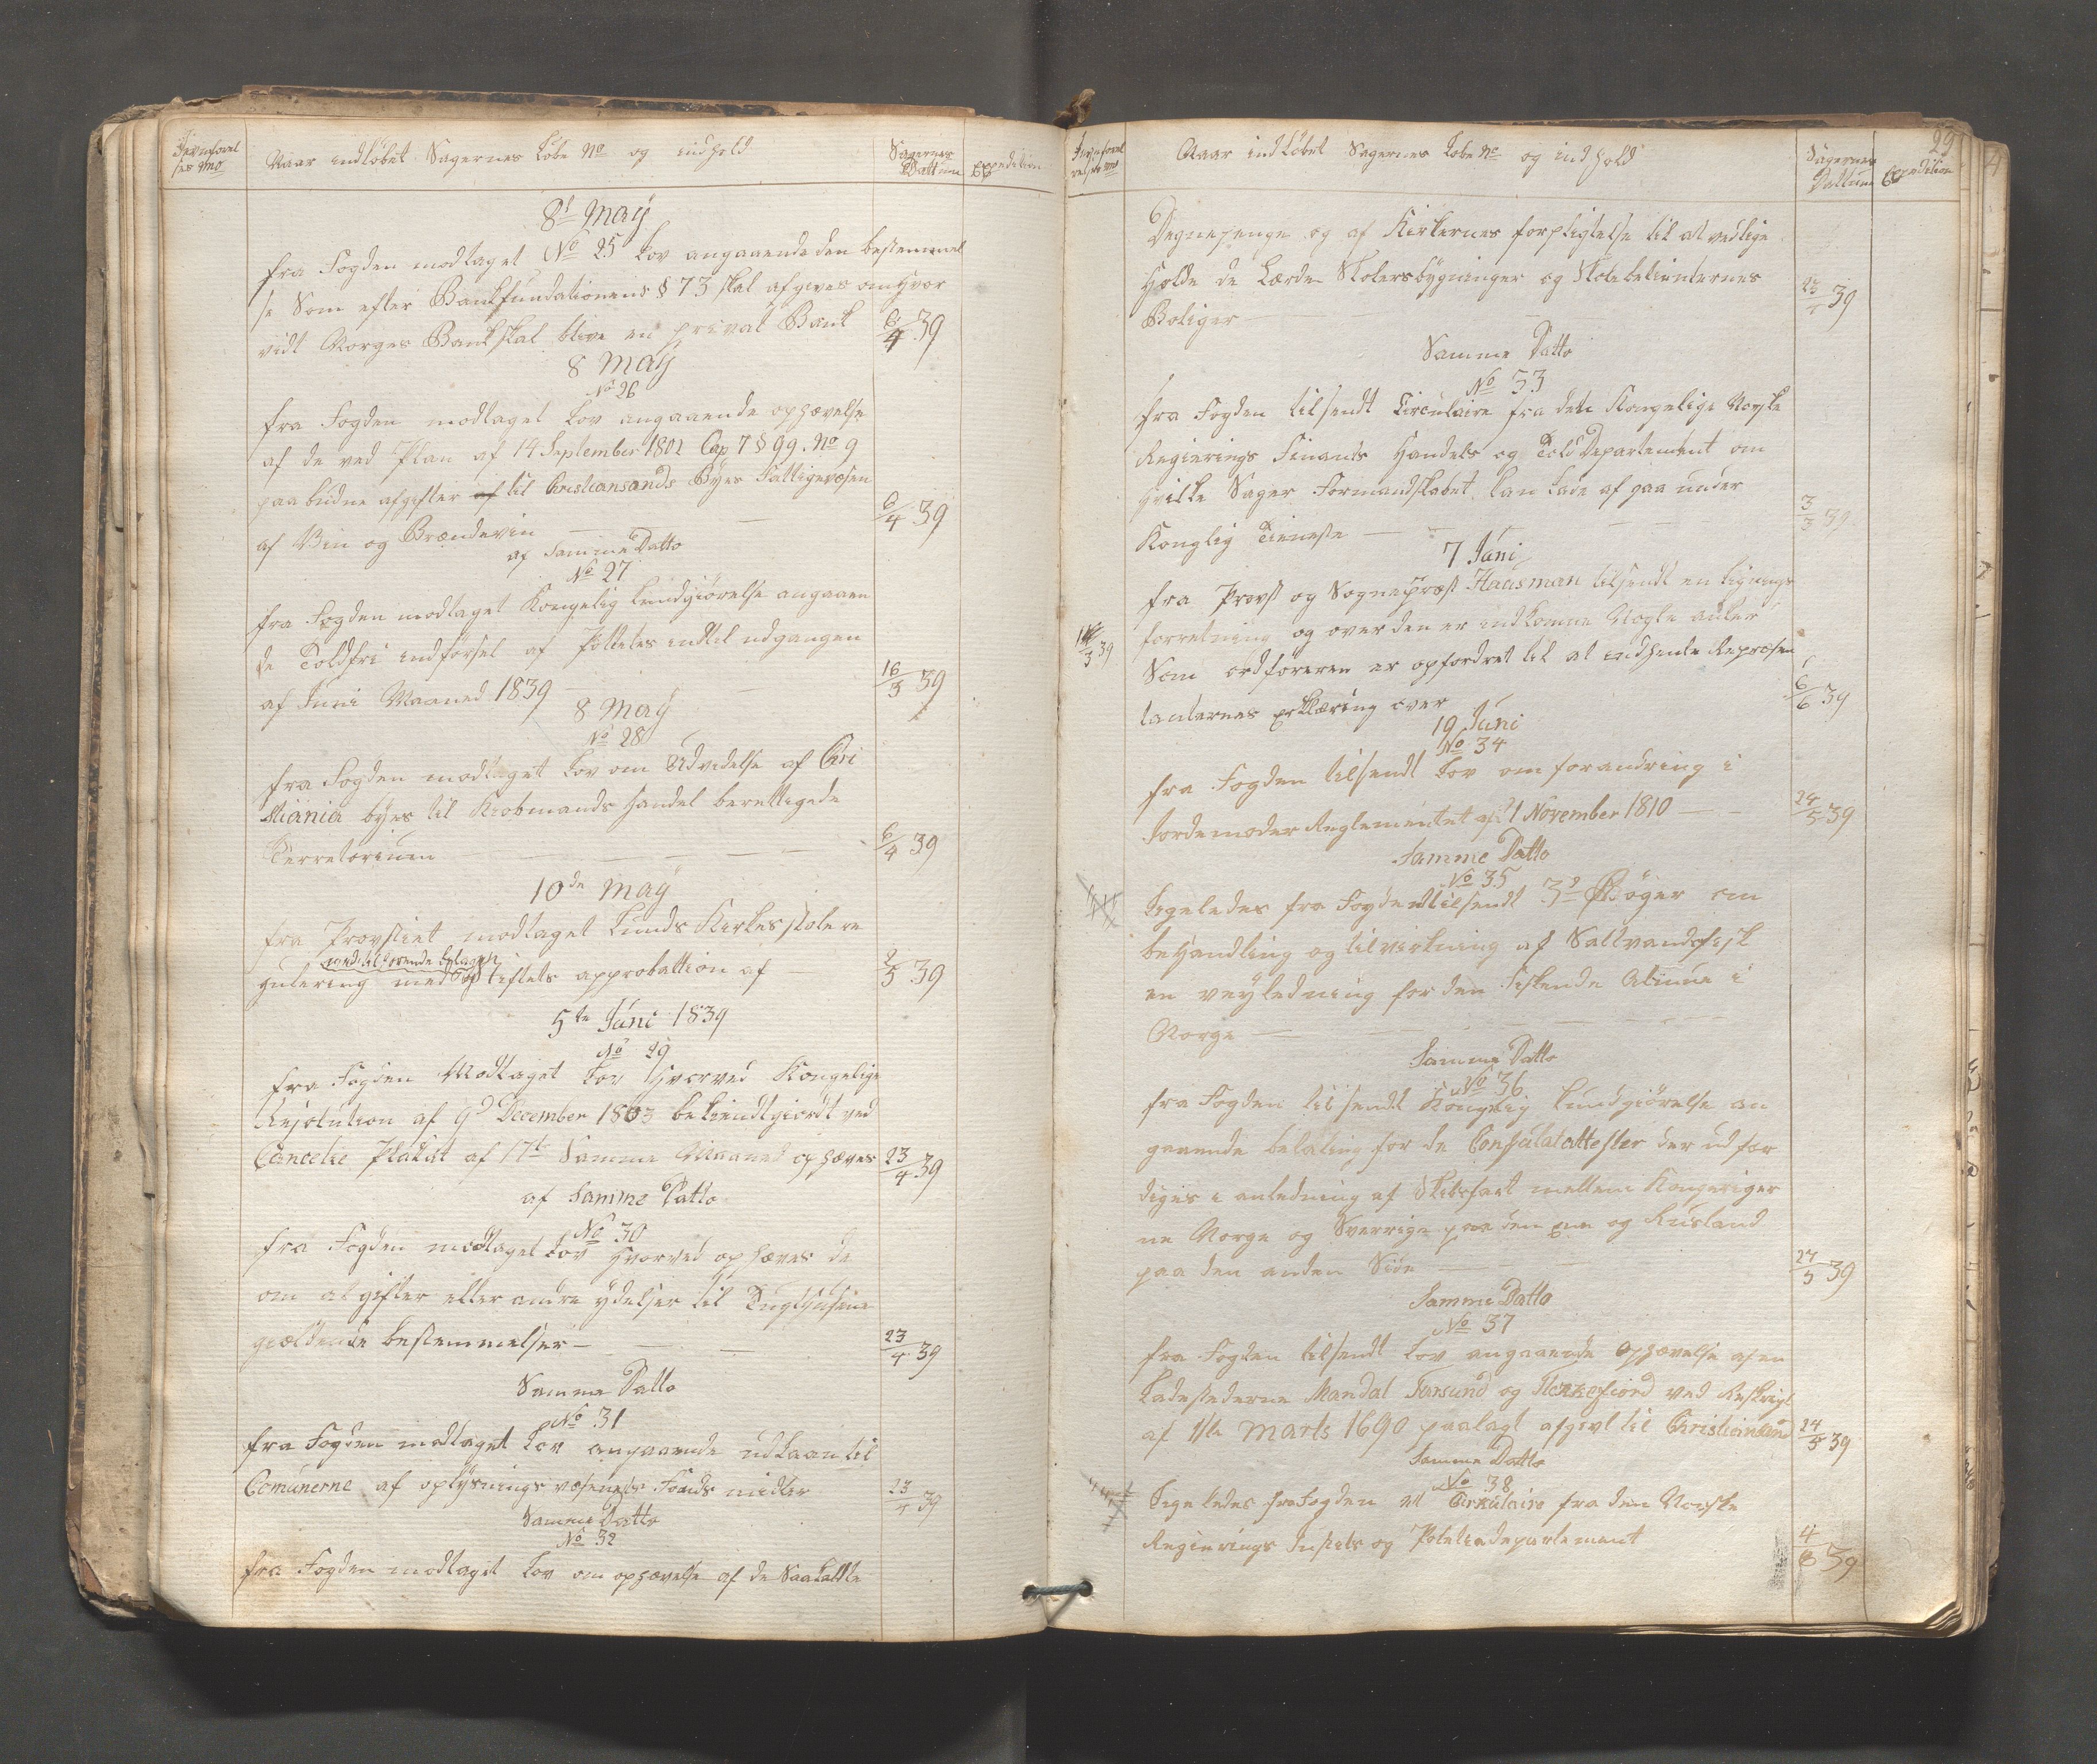 Naar indløbet Sagernes Løbe No og indhold
Sagernes Dattum
Expedition
8d May
fra Fogden modtaget No 25 Lov angaaende den bestemmel
se Som efter Bankfundationens § 73 skal afgives om hvor
vidt Norges Bank skal blive en privat Bank
6/4 39
8 May
No 26
fra Fogden modtaget Lov angaaende ophævelse
af de ved Plan af 14 September 1802 Cap 7 § 99. No 9
paabudne afgifter af til Christiansands Byes Fattigvæsen
af Vin og Brændevin
6/4 39
af Samme Datto
No 27
fra Fogden modtaget Kongelig kundgiørelse angaaen
de Toldfri indførsel af Potteter indtil udgangen
af Juni Maaned 1839
16/3 39
8 May
No 28
fra Fogden modtaget Lov om Udvidelse af Chri
stiania byes til Kiobmands Handel berettigede
Terretorium
6/4 39
10de May
fra Provstiet modtaget Lunds Kirkesskole re
gulering med Stiftets approbattion af
2/5 39
5te Juni 1839
No 29
fra Fogden Modtaget Lov Hvorved Kongelige
Resolution af 9d December 1803 bekiendtgiordt ved
Cancelie Plakat af 17de Samme Maaned ophæves
23/4 39
af Samme Datto
No 30
fra Fogden modtaget Lov Hvorved ophæves de
om afgifter eller andre ydelser til Tugthusene
giældende bestemmelser
23/4 39
Samme Datto
No 31
fra Fogden modtaget Lov angaaende udlaan til
Comunerne af oplysnings væsenets Fonds midler
23/4 39
Samme Datto
No 32
fra Fogden modtaget Lov om ophævelse af de Saakaldte
Naar indløbet Sagernes Løbe No og indhold
Sagernes Dattum
Expedition
29
Degnepenge og af Kirkernes forpligtelse til at vedlige
Holde de Lærde Skolersbygninger og Skolebetienternes
Boliger
39
Samme Datto
No 33
fra Fogden tilsendt Circulaire fra det Kongelige Norske
Regierings Finants Handels og Told Departement om
hvilke Sager Formandskabet kan lade af gaa under
Konglig Tieneste
3/3 39
7 Juni
fra Provst og Sognepræst Haasman tilsendt en lignings
forretning og over den er indkomne Nogle anker
Som ordføreren er opfordret til at indhente Repræsen
tanternes erklæring over
6/6 39
19 Juni
No 34
fra Fogden tilsendt Lov om forandring i
Jordemoder Reglementet af 21 November 1810
24/5 39
Samme Datto
No 35
Ligeledes fra Fogden tilsendt 3de Bøger om
behandling og tilvirkning af Saltvandsfisk
en veyledning for den Fiskende Almue i
Norge
Samme Datto
No 36
fra Fogden tilsendt Kongelig kundgiørelse an
gaaende betaling for de Consulatattester der udfær
diges i anledning af Skibsfart mellem Kongeriger
ne Norge og Sverrige paa den ene og Rusland
paa den anden Side
27/5 39
Samme Datto
No 37
fra Fogden tilsendt Lov angaaende Ophævelse af en
Ladestederne Mandal Farsund og Flekkefiord ved Reskript
af 1ste Marts 1690 paalagt afgivt til Christiansand
24/5 39
Samme Datto
No 38
Ligeledes fra Fogden et Cirkulaire fra den Norske
Regierings Justits og Politiedepartement
4/6 39